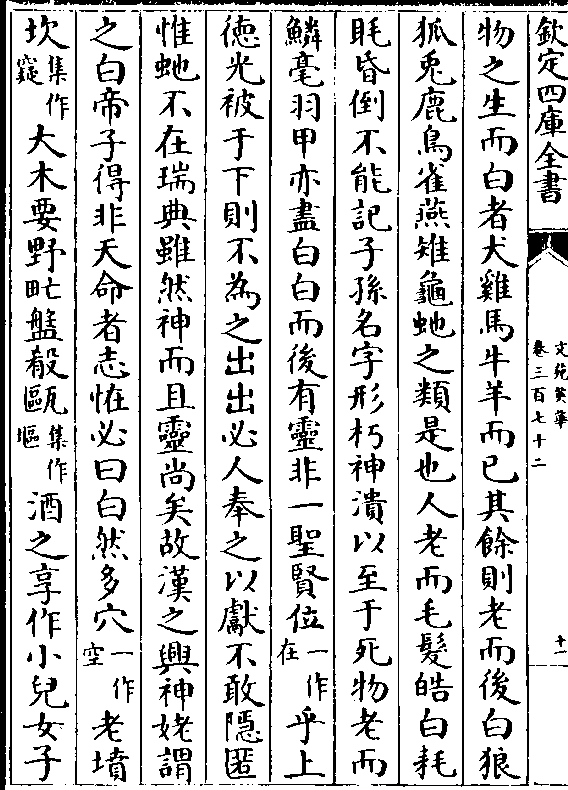 欽定四庫全書
文苑英華
卷三百七十二
十一
物之生而白者犬雞馬牛羊而已其餘則老而後白狼
狐兎鹿鳥雀燕雉龜虵之類是也人老而毛髮皓白耗
眊昏倒不能記子孫名字形朽神潰以至于死物老而
鱗毫羽甲亦盡白白而後有靈非一聖賢位一作在乎上
徳光被于下則不為之出出必人奉之以獻不敢隱匿
惟虵不在瑞典雖然神而且靈尚矣故漢之興神姥謂
之白帝子得非天命者志恠必曰白然多穴一作空老墳
坎集作窾大木要野甿盤殽甌集作塸酒之享作小兒女子